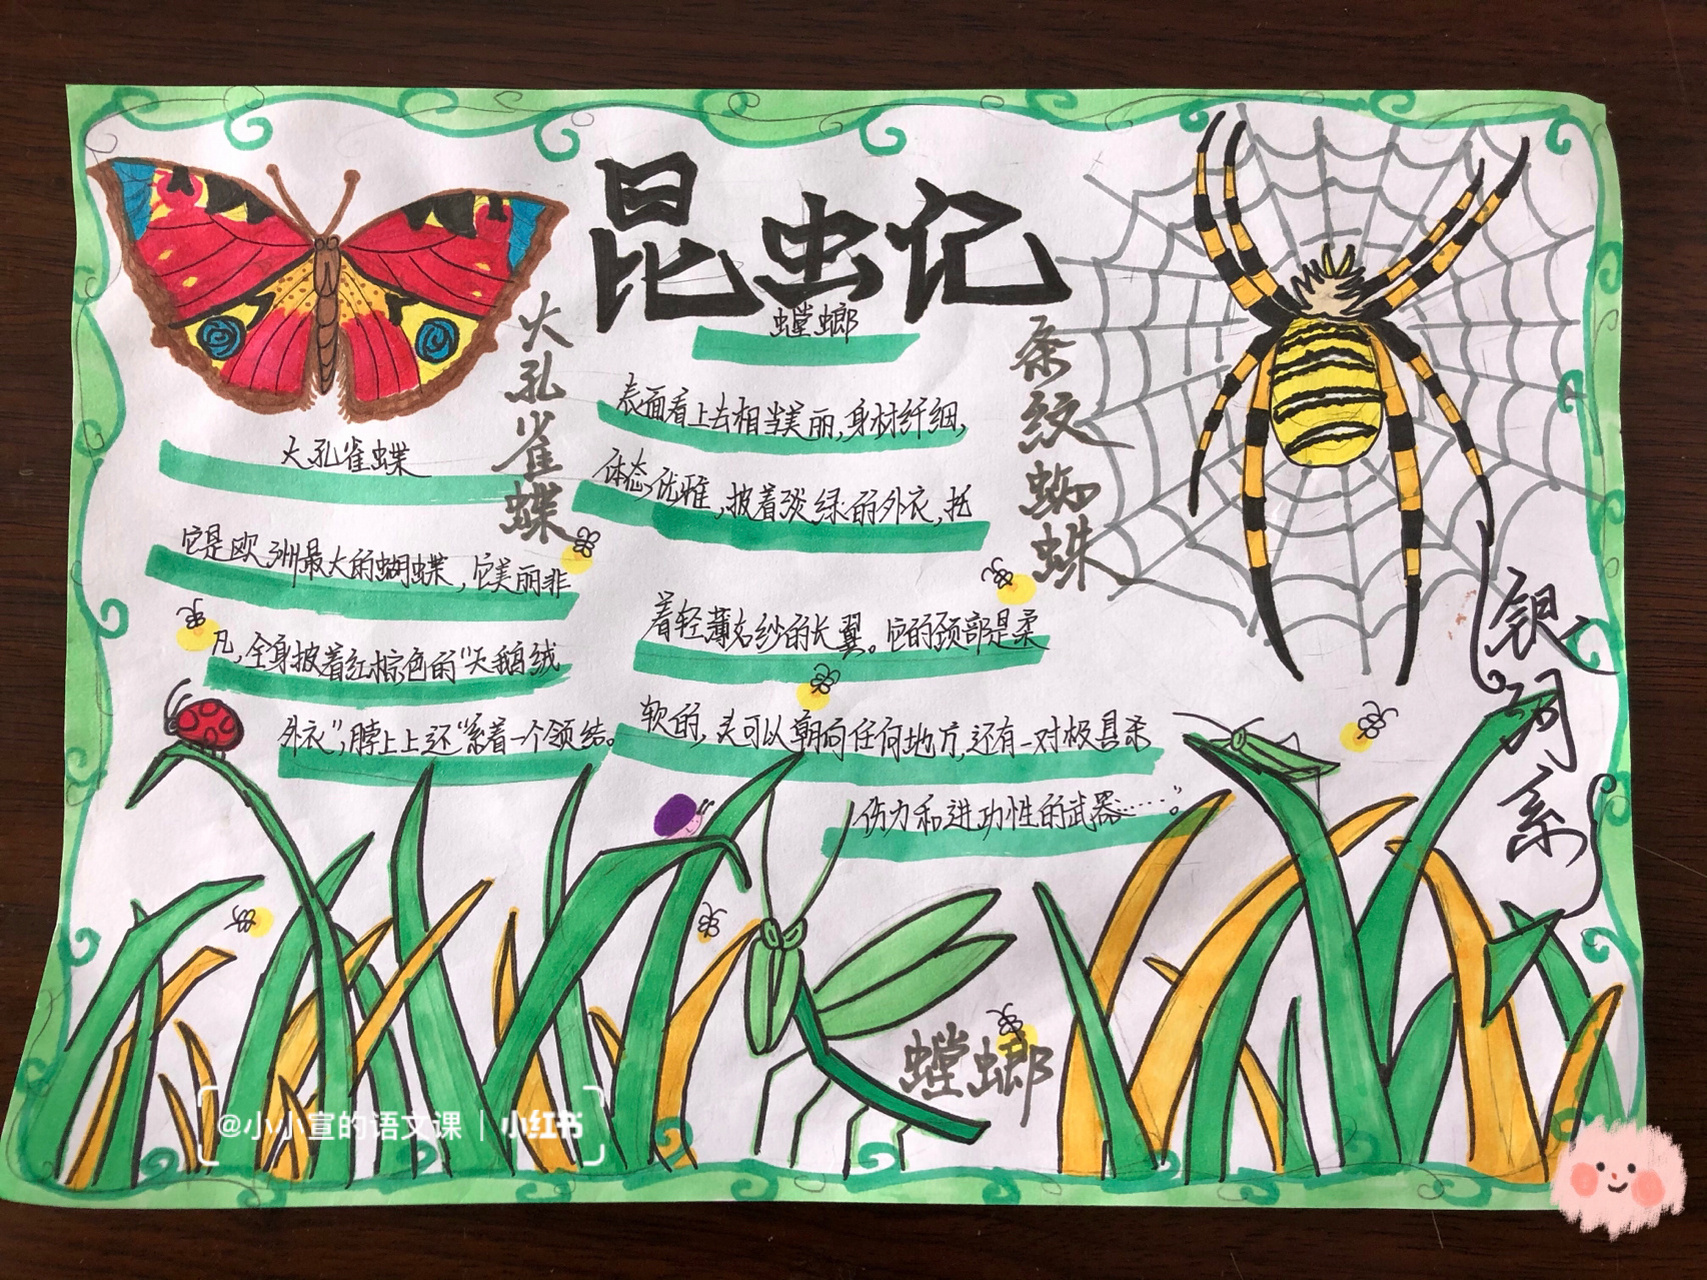 昆虫记
火孔雀蝶
火孔雀蝶
它是欧洲最大的蝴蝶,它美丽非
凡,全身披着红棕色的“天鹅绒
外衣”,脖上上还“系着一个领结。
螳螂
表面看上去相当美丽,身材纤细,
体态优雅,披着淡绿的外衣,托
着轻薄名纱的长翼。它的颈部是柔
软的,头可以朝向任何地方,还有一对极具杀
伤力和进功性的武器……”。
条纹蜘蛛
螳螂
@小小宣的语文课 | 小红书